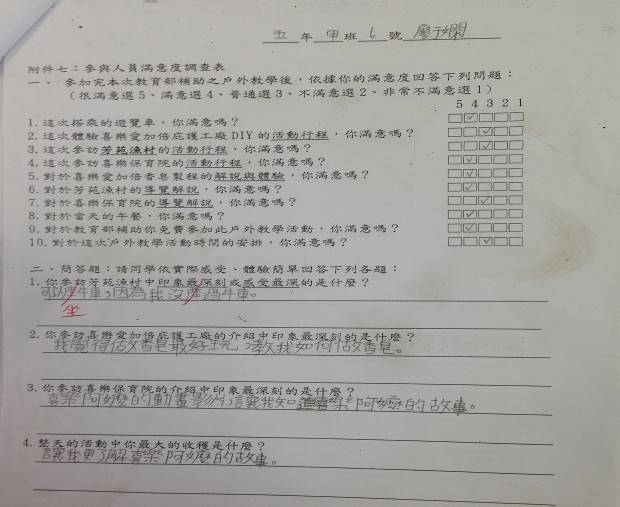 五 年 甲 班 6 號 廖于嫻
附件七：參與人員滿意度調查表
一、 參加完本次教育部補助之戶外教學後，依據你的滿意度回答下列問題：
（很滿意選5、滿意選4、普通選3、不滿意選2、非常不滿意選1）
5 4 3 2 1
1. 這次搭乘的遊覽車，你滿意嗎？ □☑□□□
2. 這次體驗喜樂愛加倍庇護工廠 DIY 的活動行程，你滿意嗎？ □□☑□□
3. 這次參訪芳苑漁村的活動行程，你滿意嗎？ □□☑□□
4. 這次參訪喜樂保育院的活動行程，你滿意嗎？ □☑□□□
5. 對於喜樂愛加倍香皂製程的解說與體驗，你滿意嗎？ □☑□□□
6. 對於芳苑漁村的導覽解說，你滿意嗎？ □☑□□□
7. 對於喜樂保育院的導覽解說，你滿意嗎？ □□☑□□
8. 對於當天的午餐，你滿意嗎？ □☑□□□
9. 對於教育部補助你免費參加此戶外教學活動，你滿意嗎？ □☑□□□
10. 對於這次戶外教學活動時間的安排，你滿意嗎？ □□☑□□
二、簡答題：請同學依實際感受、體驗簡單回答下列各題：
1. 你參訪芳苑漁村中印象最深刻或感受最深的是什麼？
牛車，因為我沒過牛車。
坐
2. 你參訪喜樂愛加倍庇護工廠的介紹中印象最深刻的是什麼？
我覺得做香皂最好玩，教我如何做香皂。
3. 你參訪喜樂保育院的介紹中印象最深刻的是什麼？
喜樂阿嬤的動畫影片，讓我知道喜樂阿嬤的故事。
4. 整天的活動中你最大的收穫是什麼？
讓我更了解喜樂阿嬤的故事。